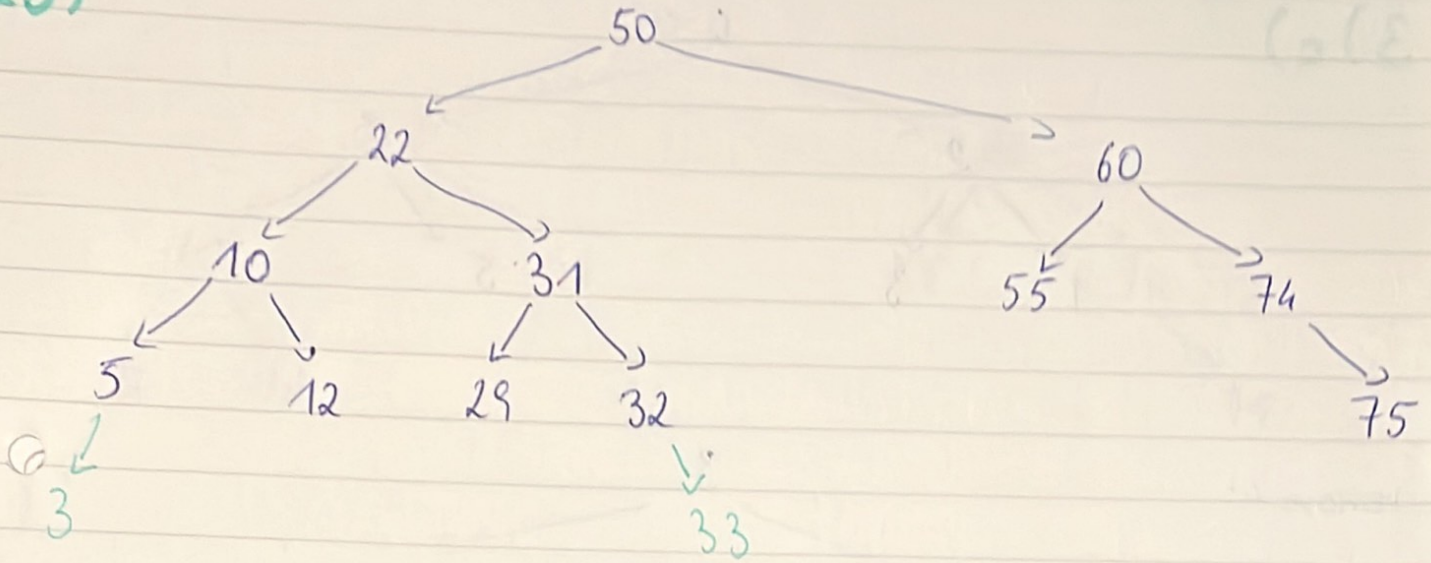 50
22 60
10 31 55 74
5 12 29 32 75
3 33